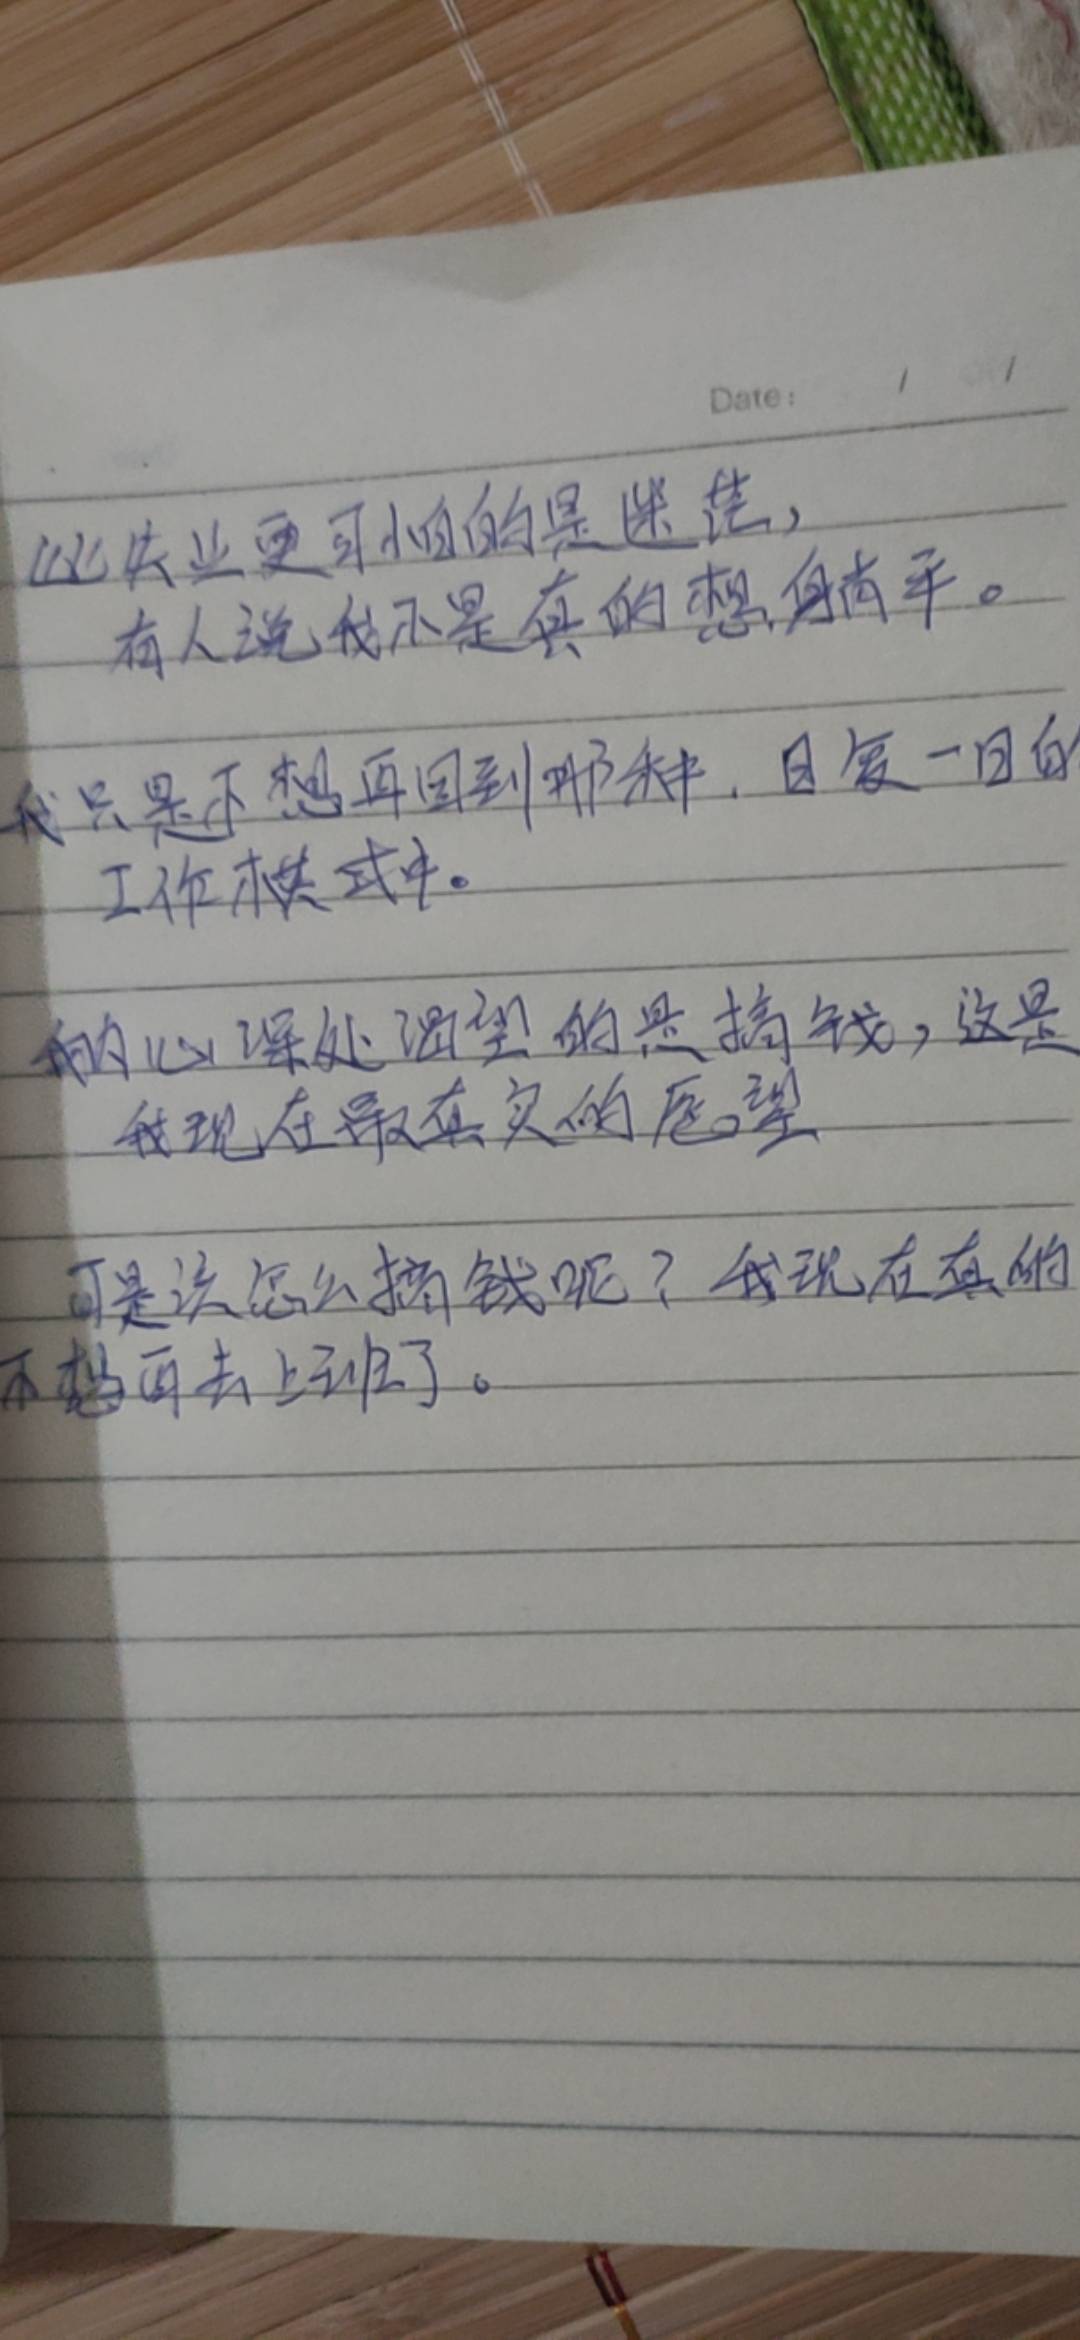 Date: / /
比失业更可怕的是迷茫，
有人说我不是真的想躺平。
我只是不想再回到那种，日复一日的
工作模式中。
我内心深处渴望的是搞钱，这是
我现在最真实的愿望
可是该怎么搞钱呢？我现在真的
不想再去上班了。